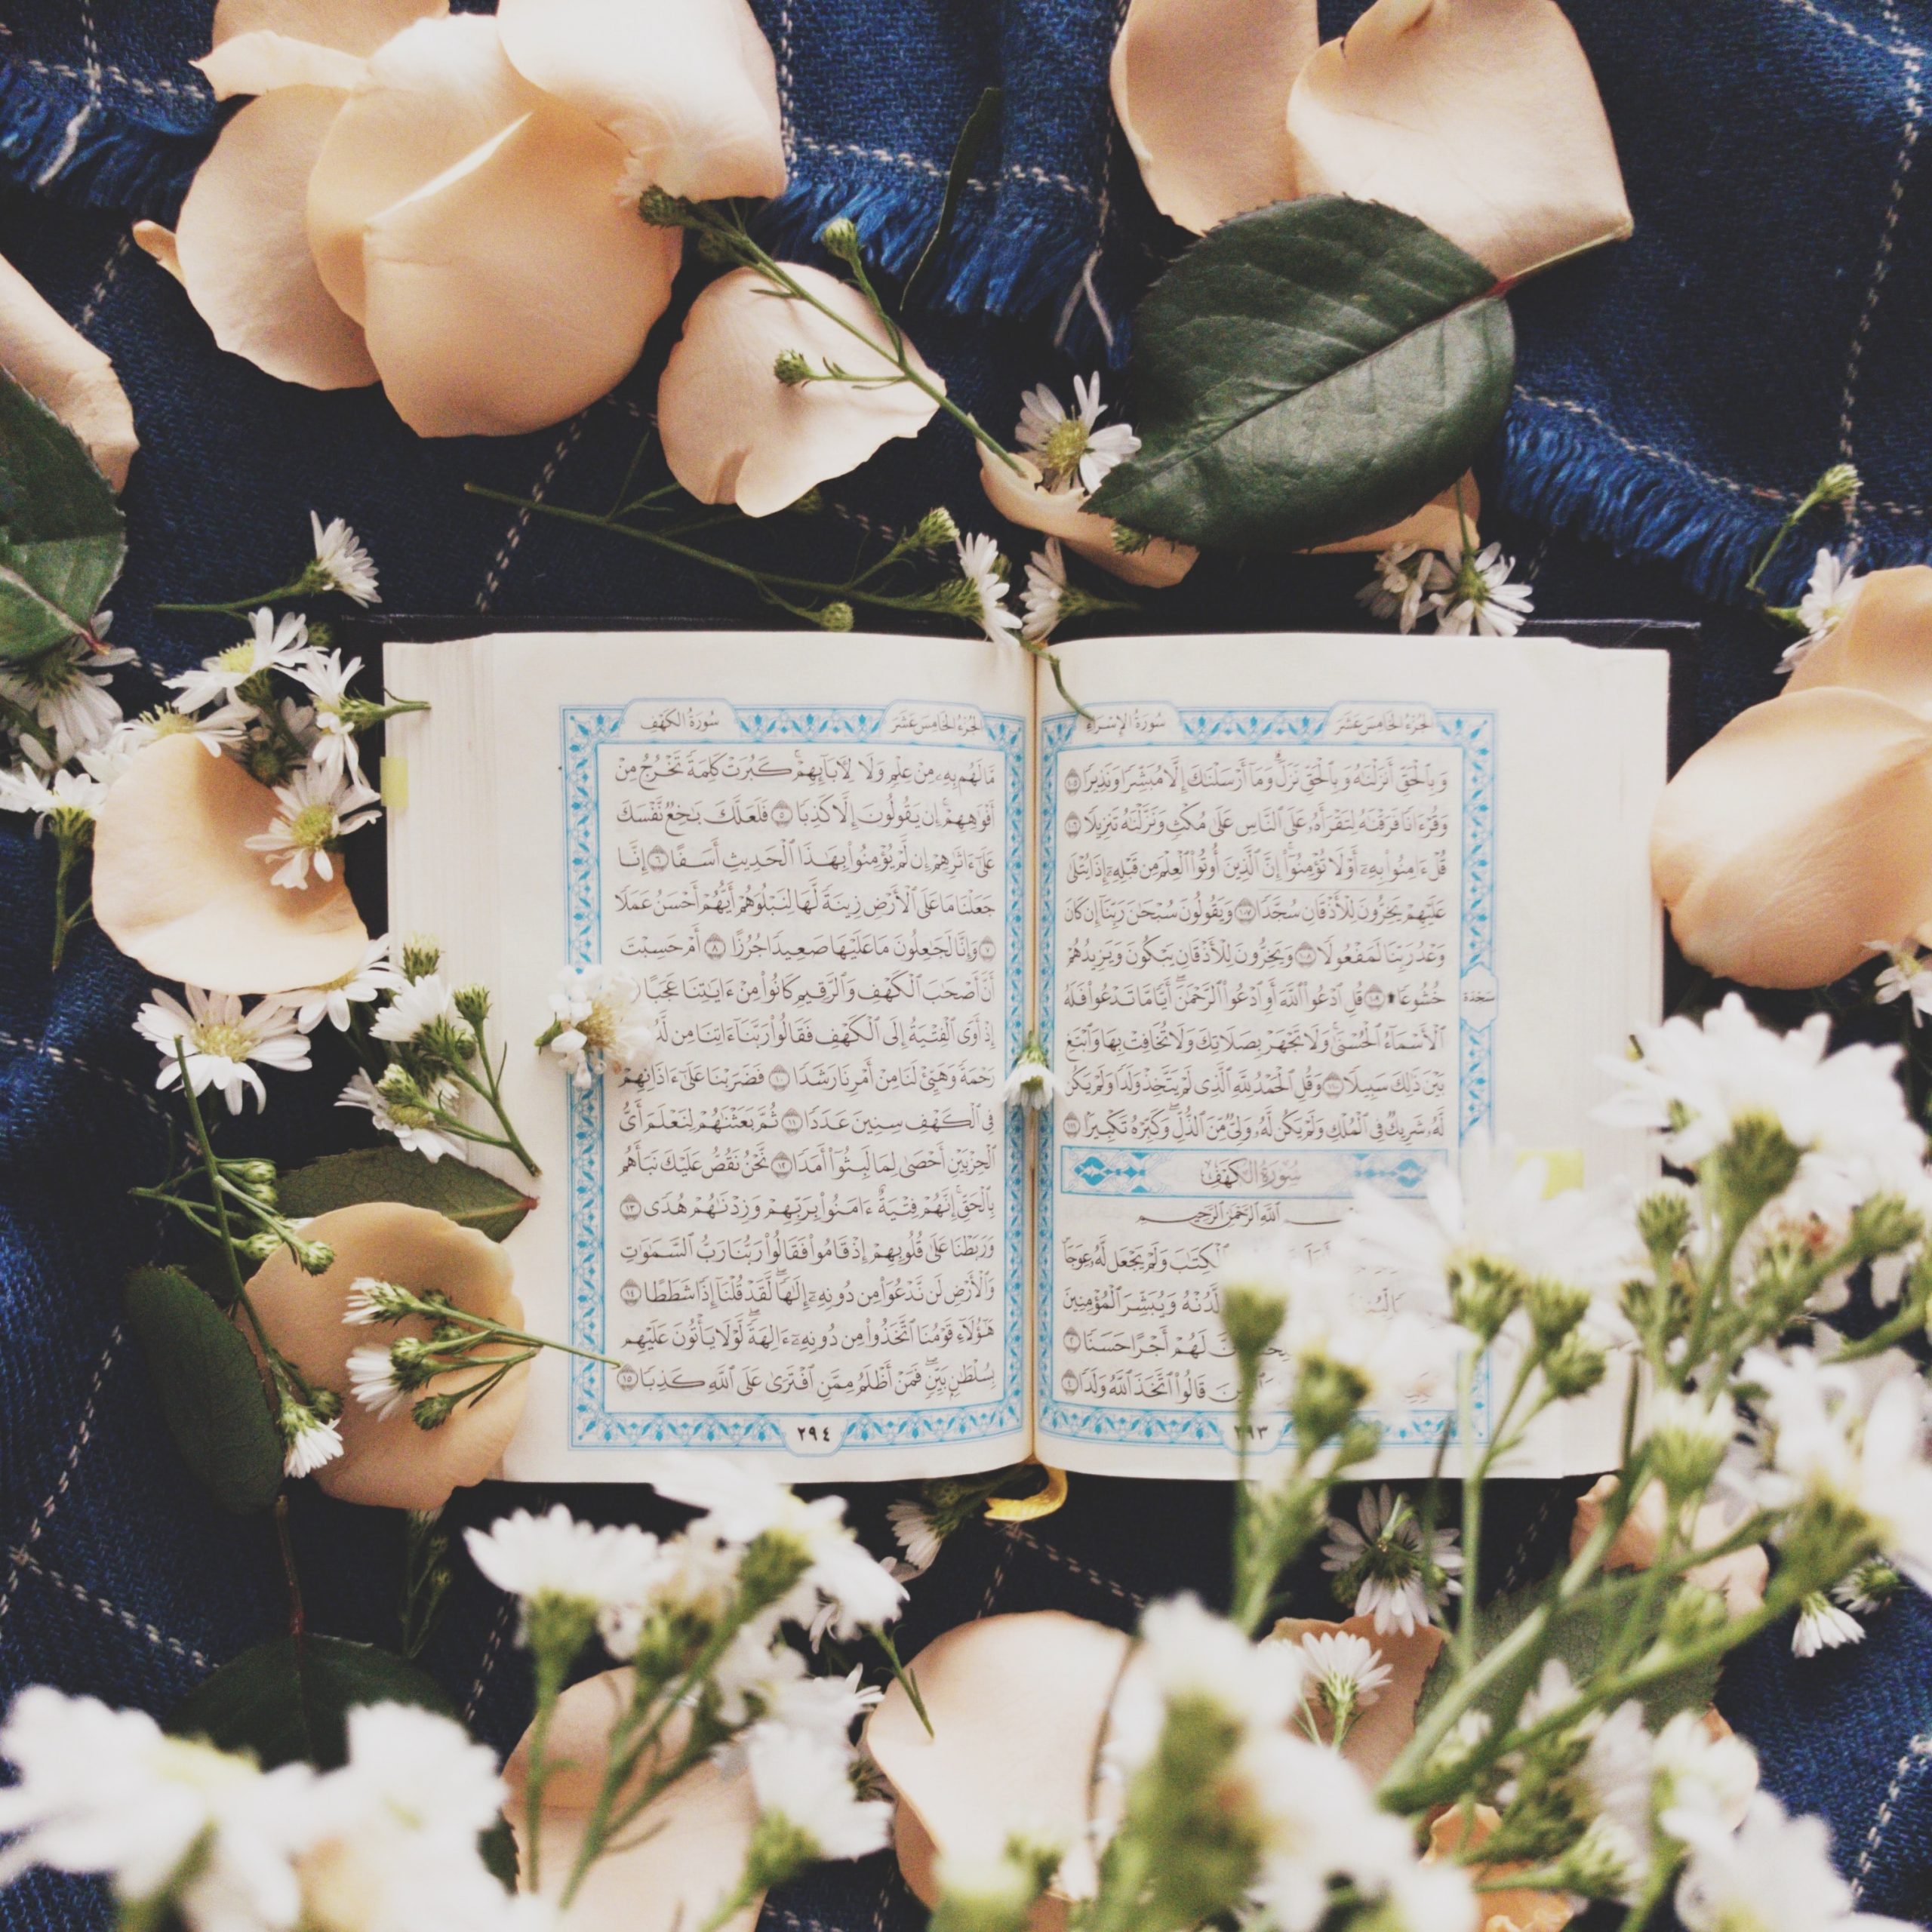 الجزء الخامس عشر
سورة الإسراء
وَبِٱلْحَقِّ أَنزَلْنَٰهُ وَبِٱلْحَقِّ نَزَلَ ۗ وَمَآ أَرْسَلْنَٰكَ إِلَّا مُبَشِّرًا وَنَذِيرًا ١٠٥
وَقُرْءَانًا فَرَقْنَٰهُ لِتَقْرَأَهُۥ عَلَى ٱلنَّاسِ عَلَىٰ مُكْثٍ وَنَزَّلْنَٰهُ تَنزِيلًا ١٠٦
قُلْ ءَامِنُوا۟ بِهِۦٓ أَوْ لَا تُؤْمِنُوٓا۟ ۚ إِنَّ ٱلَّذِينَ أُوتُوا۟ ٱلْعِلْمَ مِن قَبْلِهِۦٓ إِذَا يُتْلَىٰ
عَلَيْهِمْ يَخِرُّونَ لِلْأَذْقَانِ سُجَّدًا ١٠٧ وَيَقُولُونَ سُبْحَٰنَ رَبِّنَآ إِن كَانَ
وَعْدُ رَبِّنَا لَمَفْعُولًا ١٠٨ وَيَخِرُّونَ لِلْأَذْقَانِ يَبْكُونَ وَيَزِيدُهُمْ
خُشُوعًا ۩ ١٠٩ قُلِ ٱدْعُوا۟ ٱللَّهَ أَوِ ٱدْعُوا۟ ٱلرَّحْمَٰنَ ۖ أَيًّا مَّا تَدْعُوا۟ فَلَهُ
سجدة
ٱلْأَسْمَآءُ ٱلْحُسْنَىٰ ۚ وَلَا تَجْهَرْ بِصَلَاتِكَ وَلَا تُخَافِتْ بِهَا وَٱبْتَغِ
بَيْنَ ذَٰلِكَ سَبِيلًا ١١٠ وَقُلِ ٱلْحَمْدُ لِلَّهِ ٱلَّذِى لَمْ يَتَّخِذْ وَلَدًا وَلَمْ يَكُن
لَّهُۥ شَرِيكٌ فِى ٱلْمُلْكِ وَلَمْ يَكُن لَّهُۥ وَلِىٌّ مِّنَ ٱلذُّلِّ ۖ وَكَبِّرْهُ تَكْبِيرًا ١١١
سُورَةُ الكَهْفِ
ٱللَّهِ ٱلرَّحْمَٰنِ ٱلرَّحِيمِ
ٱلْكِتَٰبَ وَلَمْ يَجْعَل لَّهُۥ عِوَجًا
لَّدُنْهُ وَيُبَشِّرَ ٱلْمُؤْمِنِينَ
لَهُمْ أَجْرًا حَسَنًا ٢
قَالُوا۟ ٱتَّخَذَ ٱللَّهُ وَلَدًا ٤
٢٩٣
الجزء الخامس عشر
سورة الكهف
مَّا لَهُم بِهِۦ مِنْ عِلْمٍ وَلَا لِـَٔابَآئِهِمْ ۚ كَبُرَتْ كَلِمَةً تَخْرُجُ مِنْ
أَفْوَٰهِهِمْ ۚ إِن يَقُولُونَ إِلَّا كَذِبًا ٥ فَلَعَلَّكَ بَٰخِعٌ نَّفْسَكَ
عَلَىٰٓ ءَاثَٰرِهِمْ إِن لَّمْ يُؤْمِنُوا۟ بِهَٰذَا ٱلْحَدِيثِ أَسَفًا ٦ إِنَّا
جَعَلْنَا مَا عَلَى ٱلْأَرْضِ زِينَةً لَّهَا لِنَبْلُوَهُمْ أَيُّهُمْ أَحْسَنُ عَمَلًا
٧ وَإِنَّا لَجَٰعِلُونَ مَا عَلَيْهَا صَعِيدًا جُرُزًا ٨ أَمْ حَسِبْتَ
أَنَّ أَصْحَٰبَ ٱلْكَهْفِ وَٱلرَّقِيمِ كَانُوا۟ مِنْ ءَايَٰتِنَا عَجَبًا
إِذْ أَوَى ٱلْفِتْيَةُ إِلَى ٱلْكَهْفِ فَقَالُوا۟ رَبَّنَآ ءَاتِنَا مِن
رَحْمَةً وَهَيِّئْ لَنَا مِنْ أَمْرِنَا رَشَدًا ١٠ فَضَرَبْنَا عَلَىٰٓ ءَاذَانِهِمْ
فِى ٱلْكَهْفِ سِنِينَ عَدَدًا ١١ ثُمَّ بَعَثْنَٰهُمْ لِنَعْلَمَ أَىُّ
ٱلْحِزْبَيْنِ أَحْصَىٰ لِمَا لَبِثُوٓا۟ أَمَدًا ١٢ نَّحْنُ نَقُصُّ عَلَيْكَ نَبَأَهُم
بِٱلْحَقِّ ۚ إِنَّهُمْ فِتْيَةٌ ءَامَنُوا۟ بِرَبِّهِمْ وَزِدْنَٰهُمْ هُدًى ١٣
وَرَبَطْنَا عَلَىٰ قُلُوبِهِمْ إِذْ قَامُوا۟ فَقَالُوا۟ رَبُّنَا رَبُّ ٱلسَّمَٰوَٰتِ
وَٱلْأَرْضِ لَن نَّدْعُوَا۟ مِن دُونِهِۦٓ إِلَٰهًا ۖ لَّقَدْ قُلْنَآ إِذًا شَطَطًا ١٤
هَٰٓؤُلَآءِ قَوْمُنَا ٱتَّخَذُوا۟ مِن دُونِهِۦٓ ءَالِهَةً ۖ لَّوْلَا يَأْتُونَ عَلَيْهِم
بِسُلْطَٰنٍۭ بَيِّنٍ ۖ فَمَنْ أَظْلَمُ مِمَّنِ ٱفْتَرَىٰ عَلَى ٱللَّهِ كَذِبًا ١٥
٢٩٤